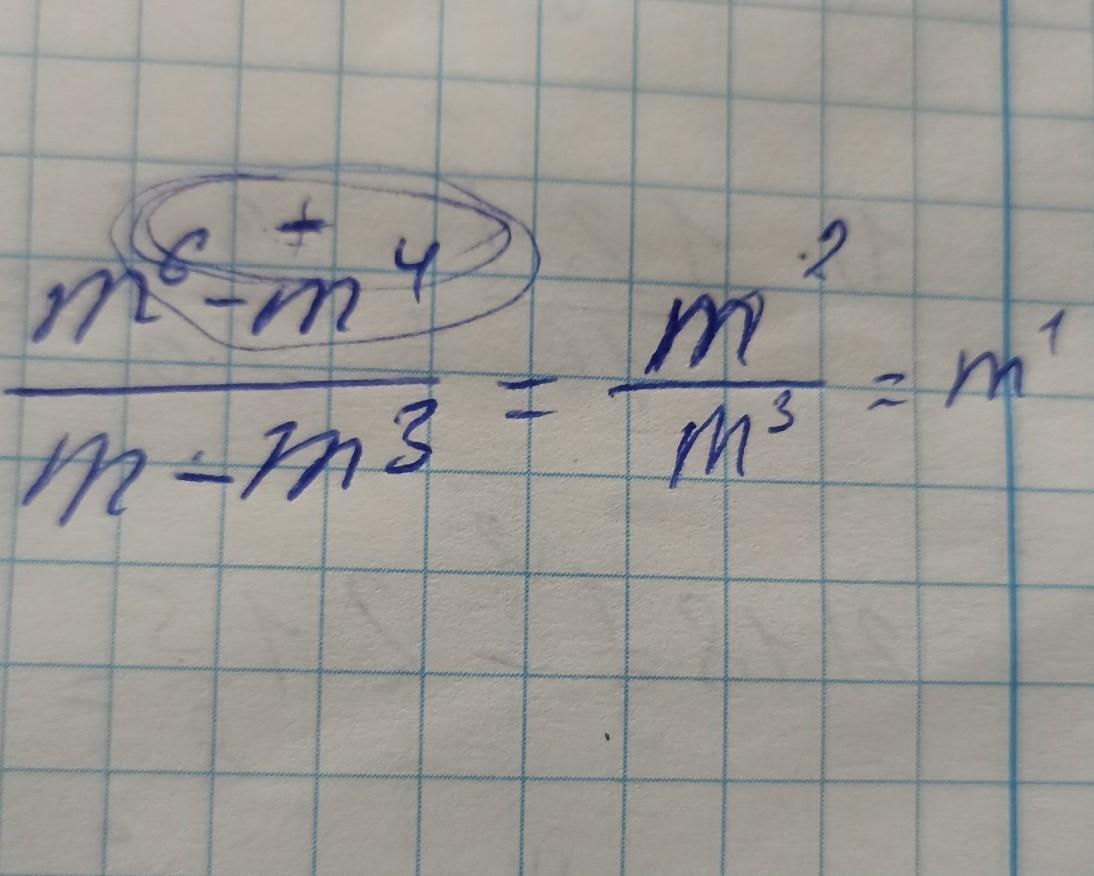 +
m⁶ - m⁴ / m - m³ = m² / m³ = m¹